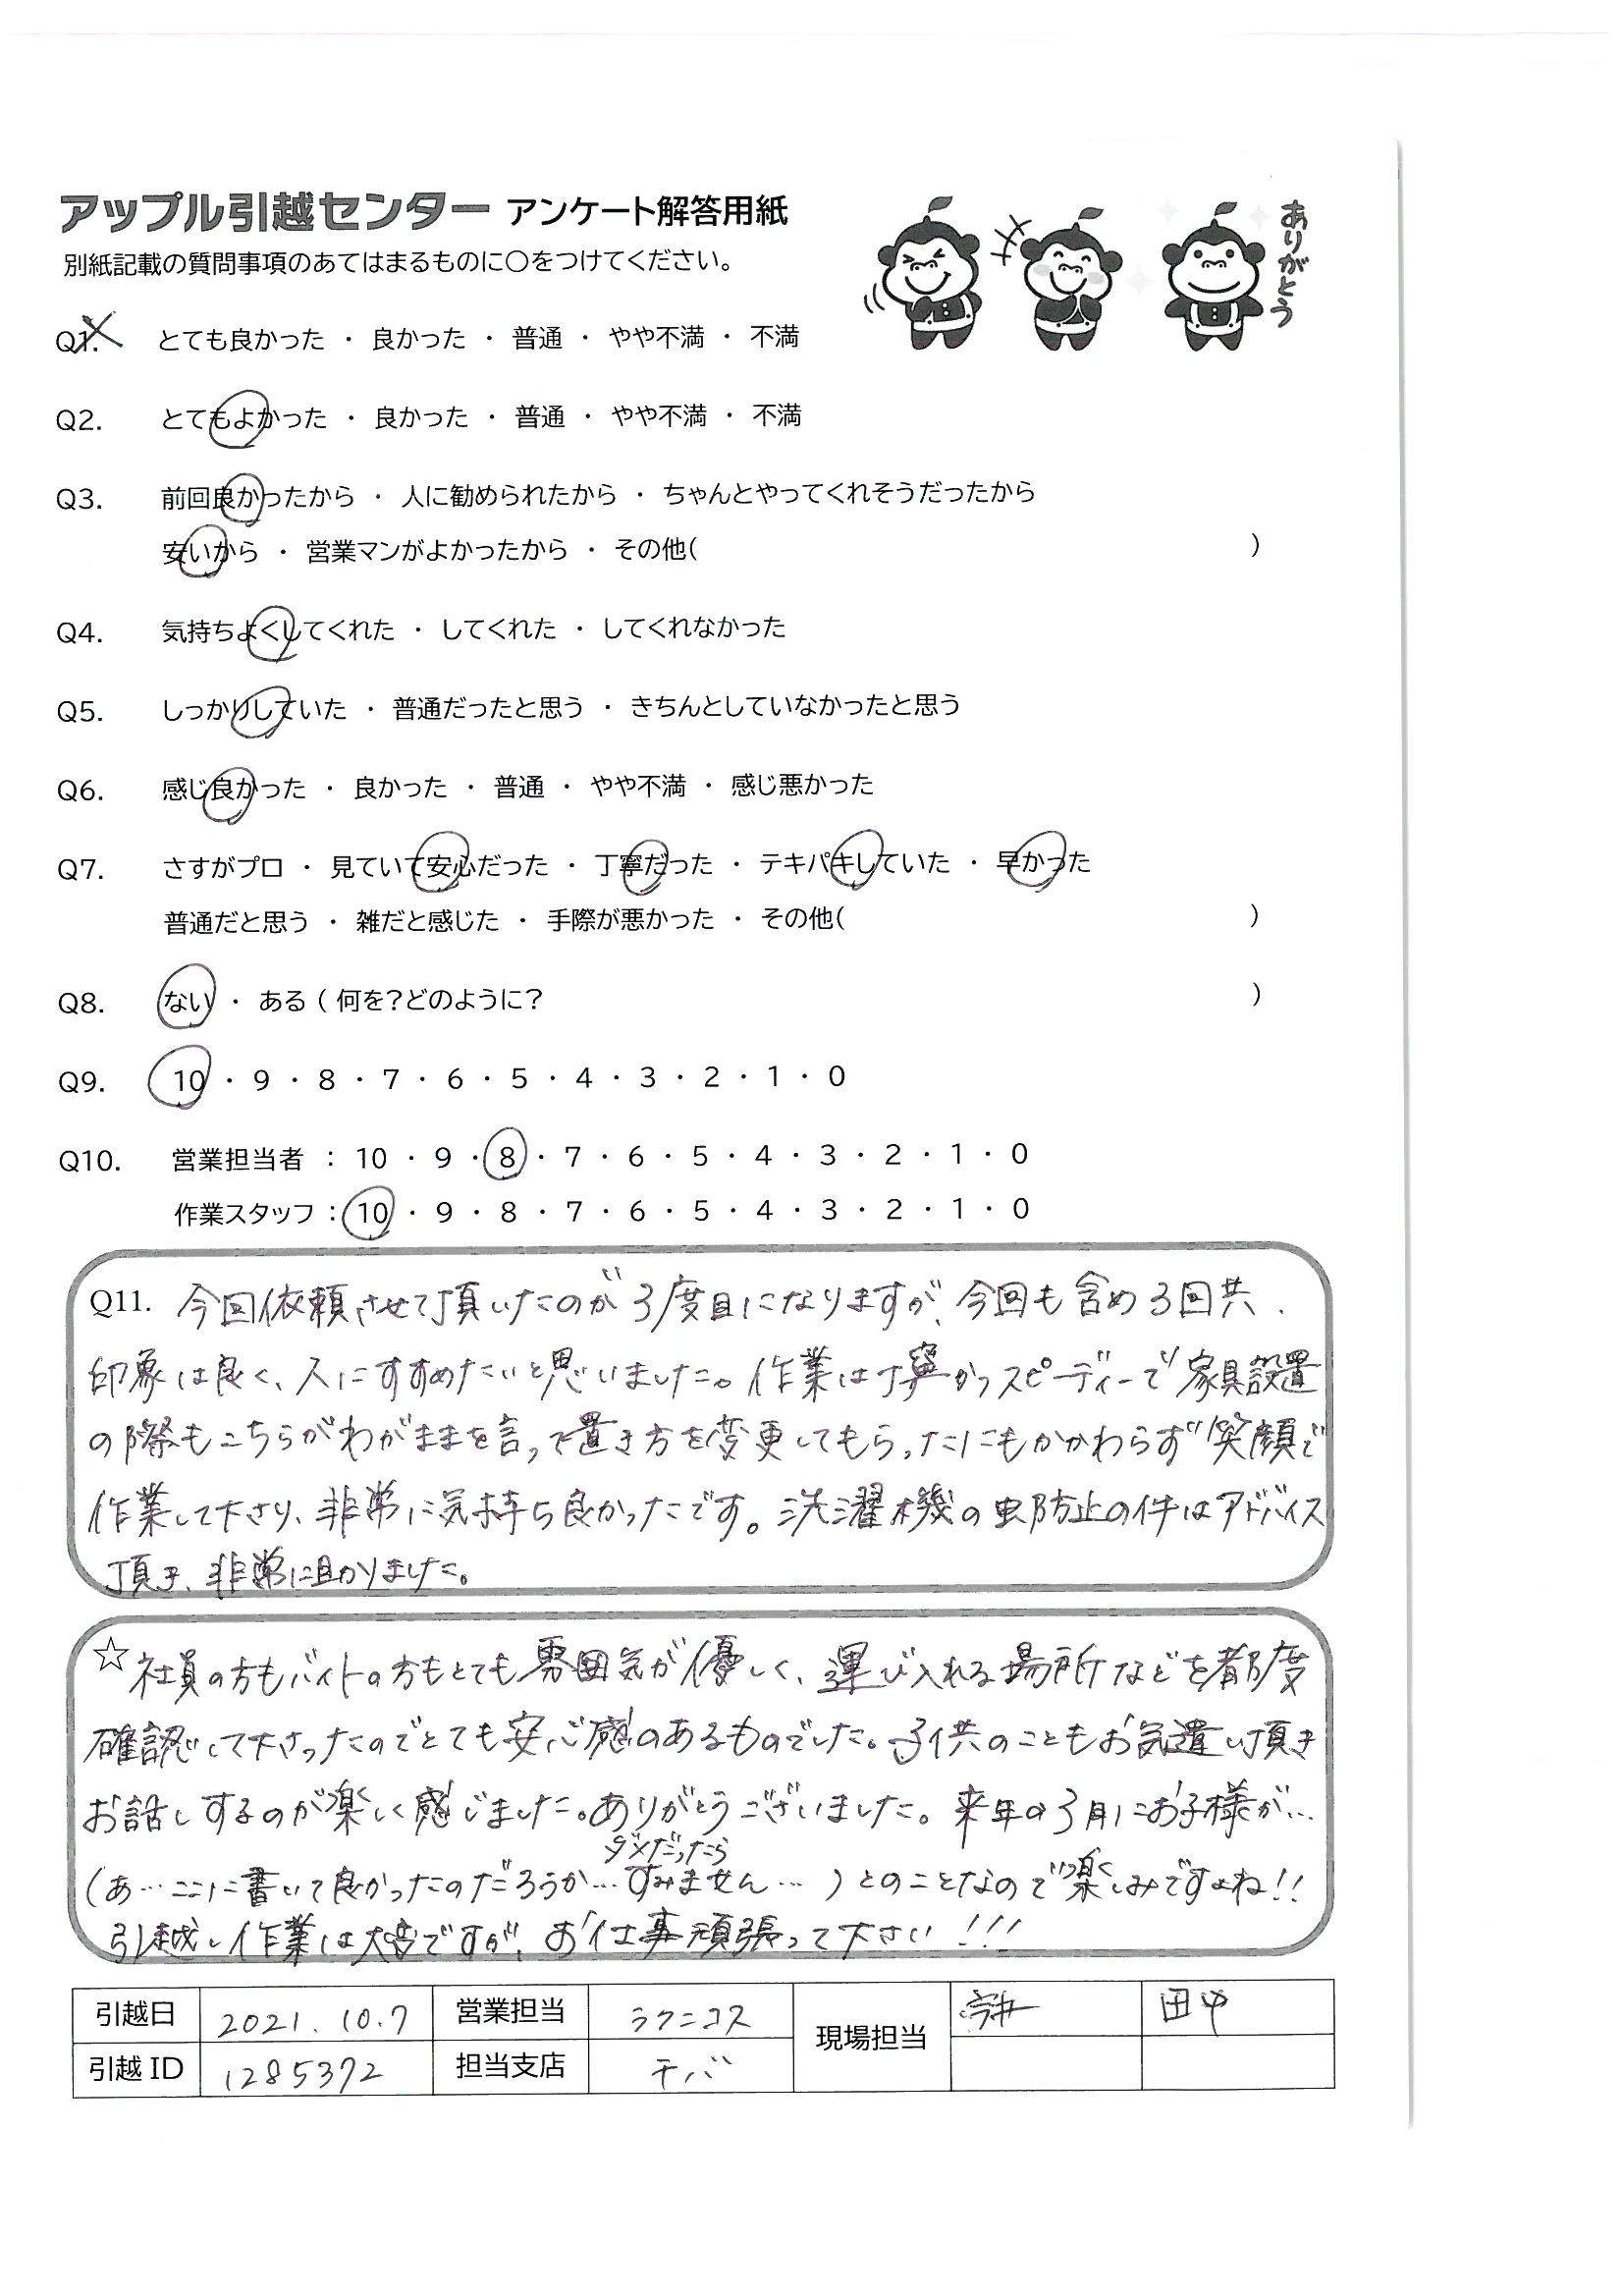 アップル引越センター アンケート解答用紙
別紙記載の質問事項のあてはまるものに〇をつけてください。
ありがとう
Q1. とても良かった ・ 良かった ・ 普通 ・ やや不満 ・ 不満
Q2. とてもよかった ・ 良かった ・ 普通 ・ やや不満 ・ 不満
Q3. 前回良かったから ・ 人に勧められたから ・ ちゃんとやってくれそうだったから
安いから ・ 営業マンがよかったから ・ その他( )
Q4. 気持ちよくしてくれた ・ してくれた ・ してくれなかった
Q5. しっかりしていた ・ 普通だったと思う ・ きちんとしていなかったと思う
Q6. 感じ良かった ・ 良かった ・ 普通 ・ やや不満 ・ 感じ悪かった
Q7. さすがプロ ・ 見ていて安心だった ・ 丁寧だった ・ テキパキしていた ・ 早かった
普通だと思う ・ 雑だと感じた ・ 手際が悪かった ・ その他( )
Q8. ない ・ ある ( 何を?どのように? )
Q9. 10 ・ 9 ・ 8 ・ 7 ・ 6 ・ 5 ・ 4 ・ 3 ・ 2 ・ 1 ・ 0
Q10. 営業担当者 : 10 ・ 9 ・ 8 ・ 7 ・ 6 ・ 5 ・ 4 ・ 3 ・ 2 ・ 1 ・ 0
作業スタッフ : 10 ・ 9 ・ 8 ・ 7 ・ 6 ・ 5 ・ 4 ・ 3 ・ 2 ・ 1 ・ 0
Q11. 今回依頼させて頂いたのが3度目になりますが、今回も含め3回共、
印象は良く、人にすすめたいと思いました。作業は丁寧かつスピーディーで家具設置
の際もこちらがわがままを言って置き方を変更してもらったにもかかわらず笑顔で
作業して下さり、非常に気持ち良かったです。洗濯機の虫防止の件はアドバイス
頂き、非常に助かりました。
☆社員の方もバイトの方もとても雰囲気が優しく、運び入れる場所などを都度
確認して下さったのでとても安心感のあるものでした。子供のこともお気遣い頂き
お話しするのが楽しく感じました。ありがとうございました。来年の3月にお子様が…
ダメだったら
(あ…ここに書いて良かったのだろうか…すみません…)とのことなので楽しみですよね!!
引越し作業は大変ですが、お仕事頑張って下さい!!!
引越日 2021.10.7 営業担当 ラクニコス 現場担当 田中
引越 ID 1285372 担当支店 チバ